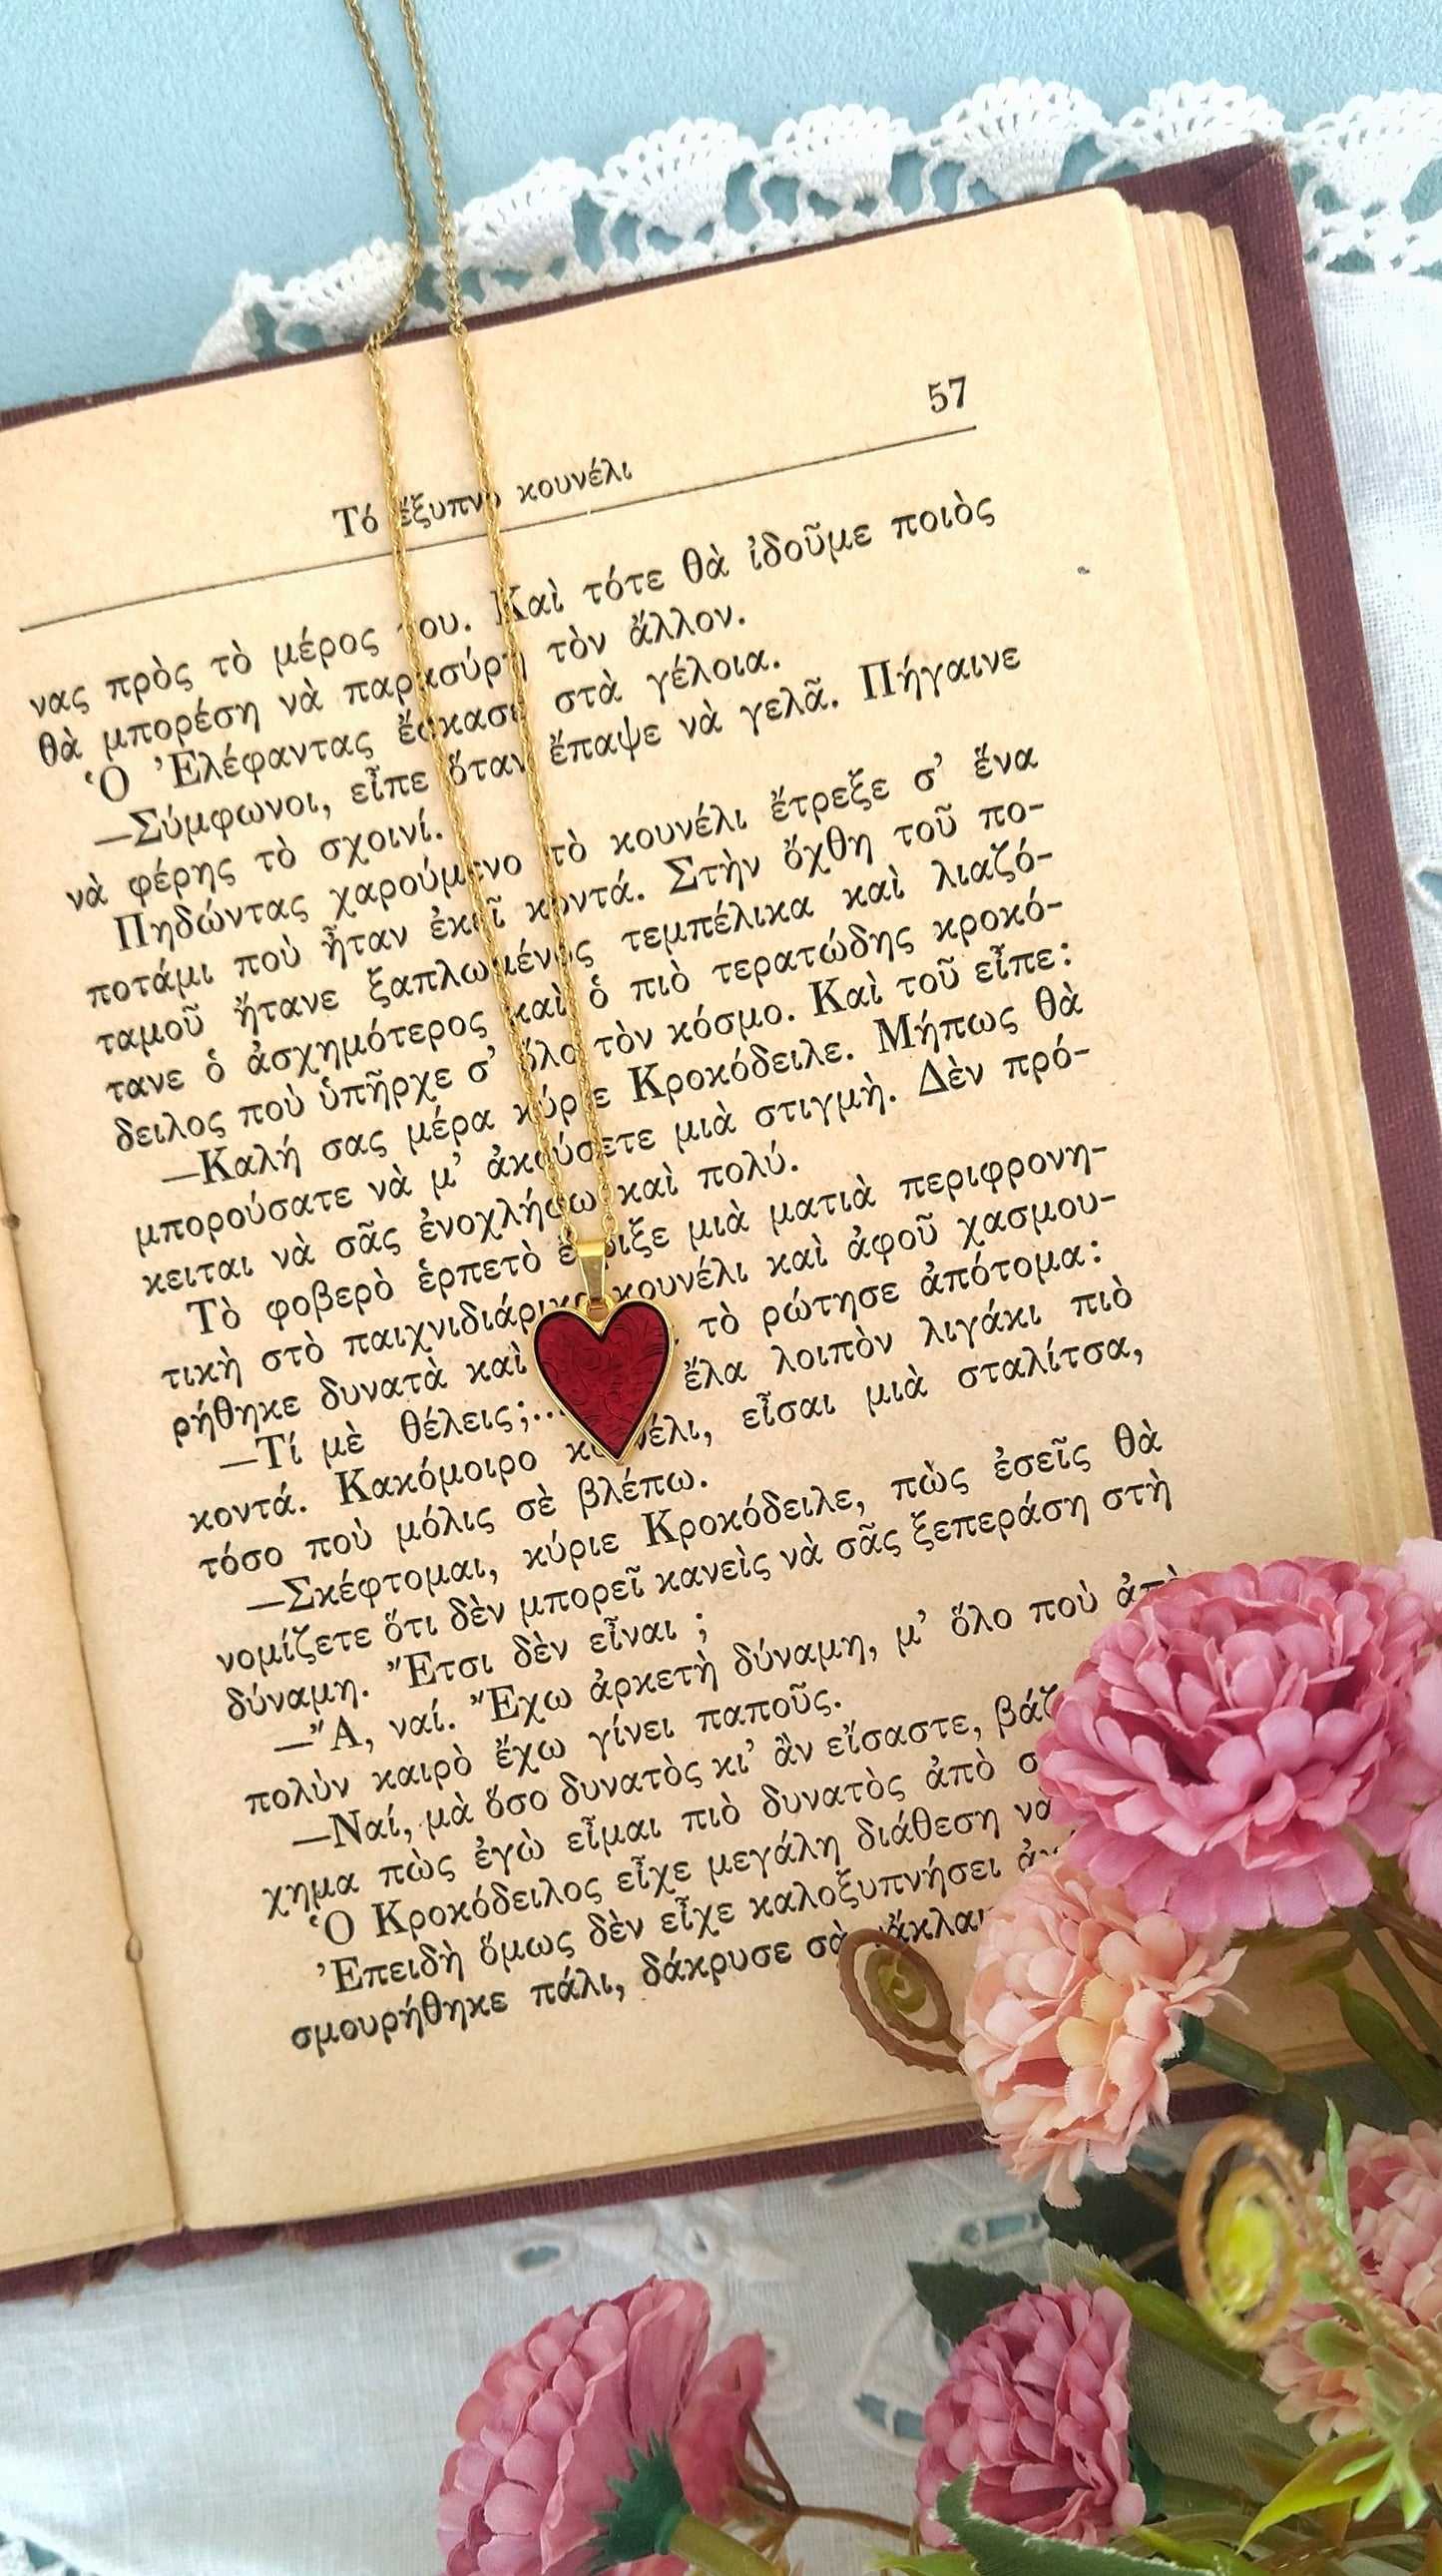 57
Τό ἔξυπνο κουνέλι
νας πρὸς τὸ μέρος του. Καὶ τότε θὰ ἰδοῦμε ποιὸς
θὰ μπορέση νὰ παρασύρη τὸν ἄλλον.
Ὁ Ἐλέφαντας ἔσκασε στὰ γέλοια.
—Σύμφωνοι, εἶπε ὅταν ἔπαψε νὰ γελᾶ. Πήγαινε
νὰ φέρης τὸ σχοινί.
Πηδώντας χαρούμενο τὸ κουνέλι ἔτρεξε σ' ἕνα
ποτάμι ποὺ ἦταν ἐκεῖ κοντά. Στὴν ὄχθη τοῦ πο-
ταμοῦ ἤτανε ξαπλωμένος τεμπέλικα καὶ λιαζό-
τανε ὁ ἀσχημότερος καὶ ὁ πιὸ τερατώδης κροκό-
δειλος ποὺ ὑπῆρχε σ' ὅλο τὸν κόσμο. Καὶ τοῦ εἶπε:
—Καλή σας μέρα κύριε Κροκόδειλε. Μήπως θὰ
μπορούσατε νὰ μ' ἀκούσετε μιὰ στιγμὴ. Δὲν πρό-
κειται νὰ σᾶς ἐνοχλήσω καὶ πολύ.
Τὸ φοβερὸ ἑρπετὸ ἔρριξε μιὰ ματιὰ περιφρονη-
τικὴ στὸ παιχνιδιάρικο κουνέλι καὶ ἀφοῦ χασμου-
ρήθηκε δυνατὰ καὶ τὸ ρώτησε ἀπότομα:
—Τί μὲ θέλεις;... ἔλα λοιπὸν λιγάκι πιὸ
κοντά. Κακόμοιρο κουνέλι, εἶσαι μιὰ σταλίτσα,
τόσο ποὺ μόλις σὲ βλέπω.
—Σκέφτομαι, κύριε Κροκόδειλε, πὼς ἐσεῖς θὰ
νομίζετε ὅτι δὲν μπορεῖ κανεὶς νὰ σᾶς ξεπεράση στὴ
δύναμη. Ἔτσι δὲν εἶναι ;
—Ἄ, ναί. Ἔχω ἀρκετὴ δύναμη, μ' ὅλο ποὺ ἀπὸ
πολὺν καιρὸ ἔχω γίνει παποῦς.
—Ναί, μὰ ὅσο δυνατὸς κι' ἂν εἴσαστε, βάζ
χημα πὼς ἐγὼ εἶμαι πιὸ δυνατὸς ἀπὸ σ
Ὁ Κροκόδειλος εἶχε μεγάλη διάθεση νὰ
Ἐπειδὴ ὅμως δὲν εἶχε καλοξυπνήσει
σμουρήθηκε πάλι, δάκρυσε σὰ